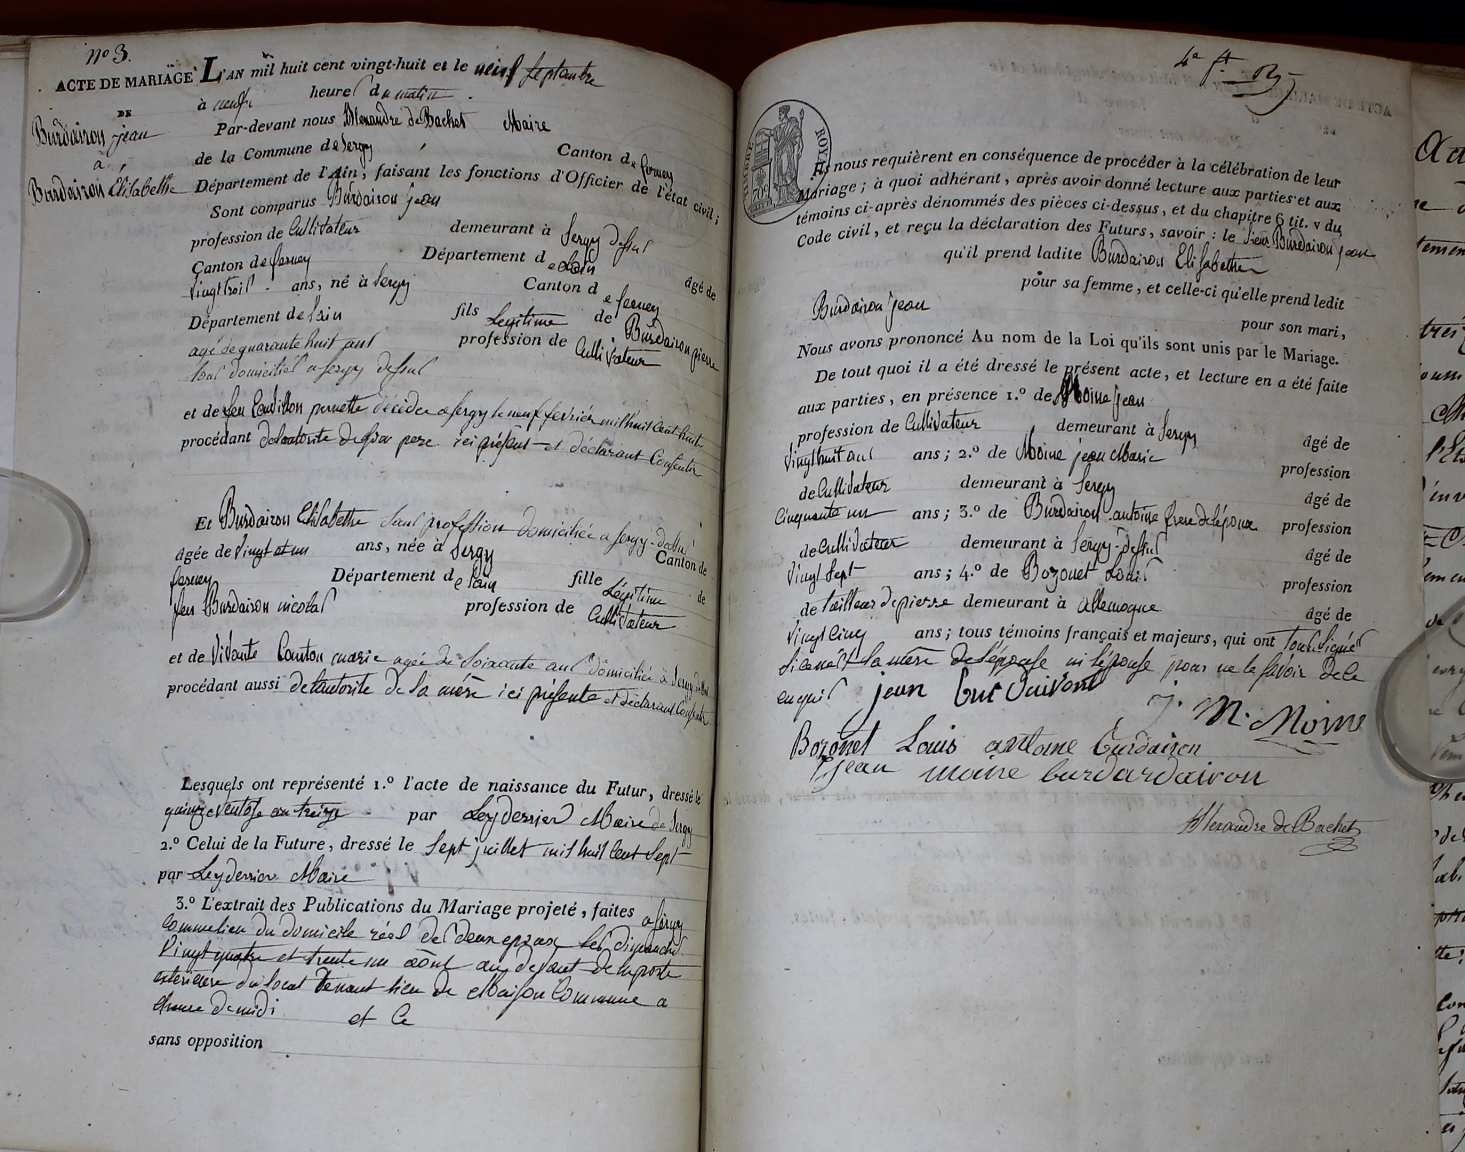 N° 3.
ACTE DE MARIAGE L'AN mil huit cent vingt-huit et le neuf septembre
DE
à neuf heures du matin
Burdairon jean
Par-devant nous Alexandre de Bachet Maire
à
de la Commune de Sergy Canton de ferney
Burdairon Élisabethe
Département de l'Ain, faisant les fonctions d'Officier de l'état civil ;
Sont comparus Burdairon jean
profession de Cultivateur demeurant à Sergy Dessus
Canton de ferney Département de Lain âgé de
vingt trois ans, né à Sergy Canton de ferney
Département de Lain fils Legitime de Burdairon pierre
agé de quarante huit ans profession de Cultivateur
tous domiciliés a sergy dessus
et de feu pernette décédée a sergy le neuf fevrier mil huit cent huit
procédant de lautorite de son pere ici présent et déclarant Consentir
Et Burdairon Elisabethe sans profession domiciliée a sergy-dessus
âgée de vingt et un ans, née à Sergy Canton de
ferney Département de Lain fille Légitime de
feu Burdairon nicolas profession de Cultivateur
et de vivante marie agée de soixante ans domiciliée à Sergy
procédant aussi de lautorite de sa mère ici présente et déclarant Consentir
Lesquels ont représenté 1.° l'acte de naissance du Futur, dressé le
quinze ventose an treize par Leyderrier Maire de Sergy
2.° Celui de la Future, dressé le sept juillet mil huit cent sept
par Leyderrier Maire
3.° L'extrait des Publications du Mariage projeté, faites a sergy
Comme lieu du domicile réel des deux epoux les dimanches
vingt quatre et trente un août au devant de la porte
exterieure du local tenant lieu de Maison Commune a
de midi et Ce
sans opposition
TIMBRE ROYAL
Ils nous requièrent en conséquence de procéder à la célébration de leur
Mariage ; à quoi adhérant, après avoir donné lecture aux parties et aux
témoins ci-après dénommés des pièces ci-dessus, et du chapitre 6 tit. v du
Code civil, et reçu la déclaration des Futurs, savoir : le sieur Burdairon jean
qu'il prend ladite Burdairon Elisabethe
pour sa femme, et celle-ci qu'elle prend ledit
Burdairon jean
pour son mari,
Nous avons prononcé Au nom de la Loi qu'ils sont unis par le Mariage.
De tout quoi il a été dressé le présent acte, et lecture en a été faite
aux parties, en présence 1.° de Moine jean
profession de Cultivateur demeurant à Sergy âgé de
vingt huit ans ans ; 2.° de Moine jean Marie profession
de Cultivateur demeurant à Sergy âgé de
Cinquante un ans ; 3.° de Burdairon antoine frere de lépoux profession
de Cultivateur demeurant à Sergy-Dessus âgé de
vingt sept ans ; 4.° de Bozonet Louis profession
de tailleur de pierre demeurant à Allemogne âgé de
vingt Cinq ans ; tous témoins français et majeurs, qui ont tous signés
la mère de lépouse ni lépouse pour ne le savoir de ce
enquis jean
J. M. Moine
Bozonet Louis antoine burdairon
jean moine burdardairon
Alexandre de Bachet